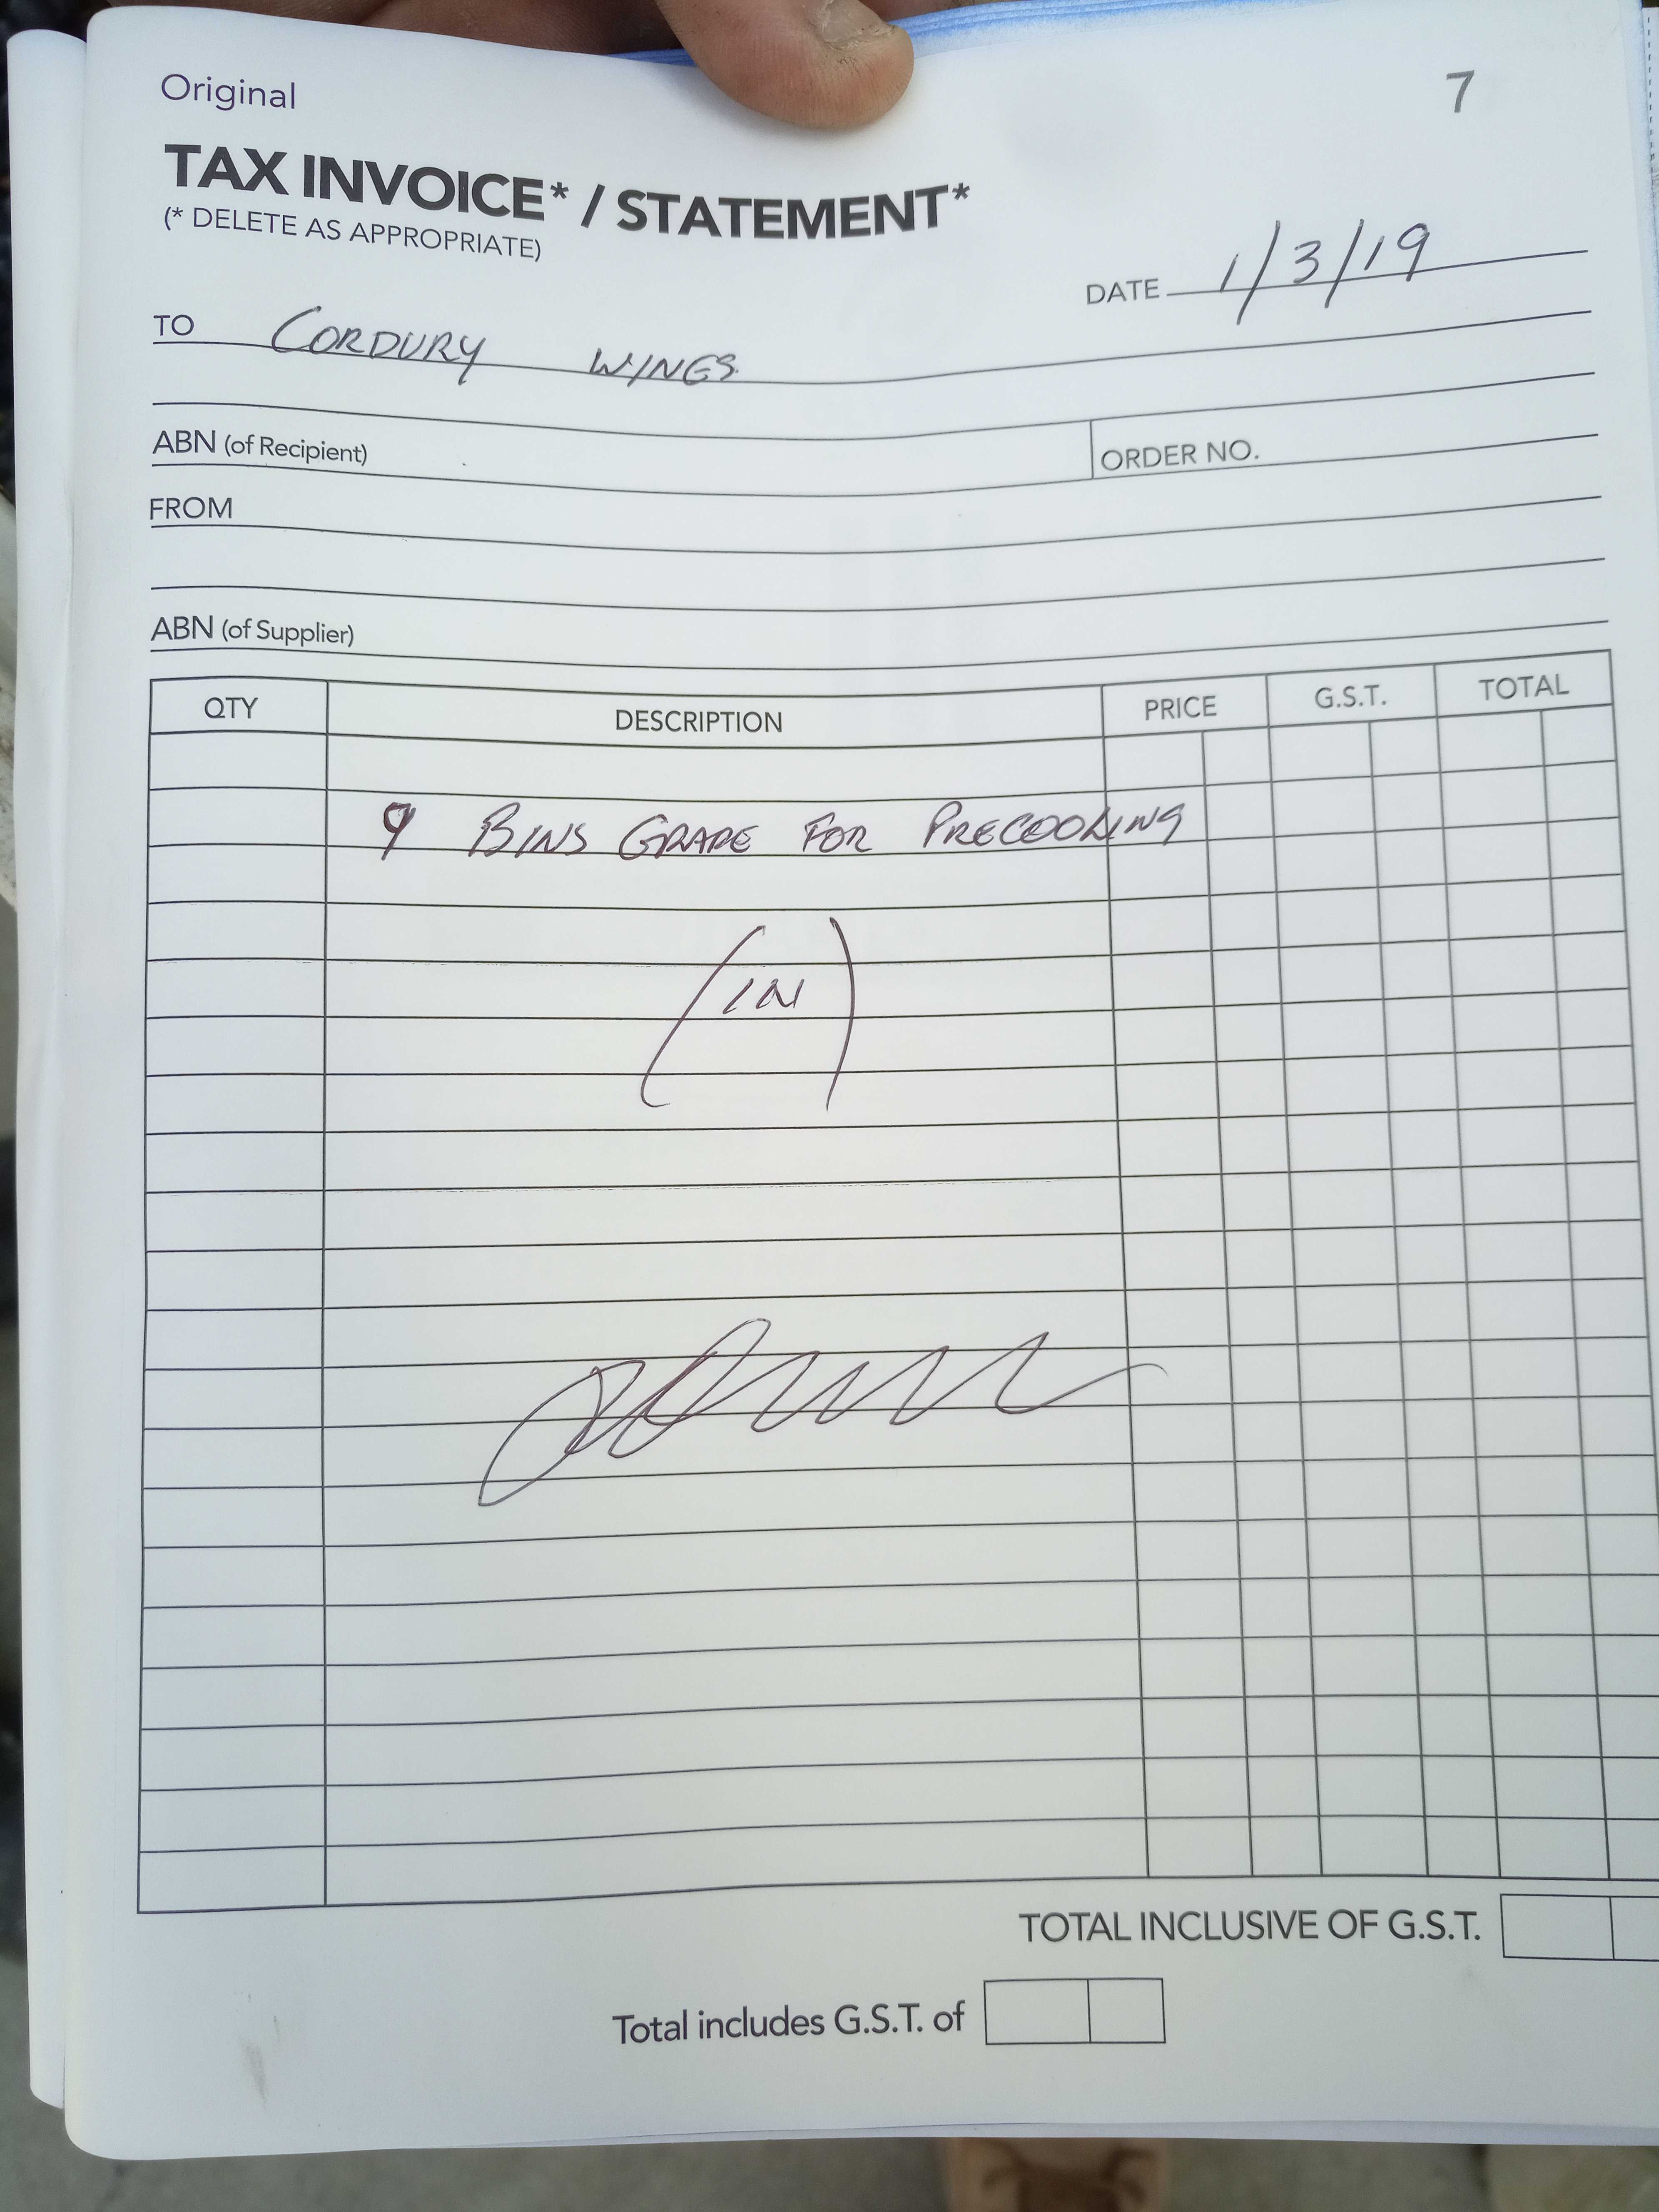 Original
7
TAX INVOICE* / STATEMENT*
(* DELETE AS APPROPRIATE)
DATE 1/3/19
TO CORDURY WINGS
ABN (of Recipient)
ORDER NO.
FROM
ABN (of Supplier)
QTY DESCRIPTION PRICE G.S.T. TOTAL
9 BINS GRAPE FOR PRECOOLING
(IN)
TOTAL INCLUSIVE OF G.S.T.
Total includes G.S.T. of